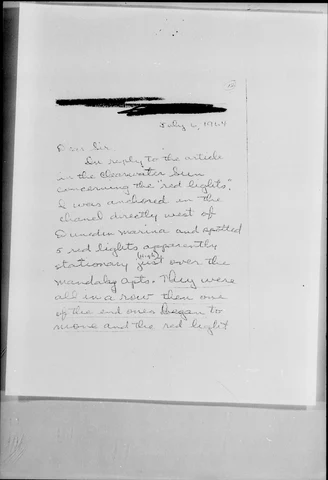 July 6, 1964
Dear Sir.
In reply to the article
in the Clearwater Sun
concerning the "red lights".
I was anchored in the
chanel directly west of
Dunedin Marina and spotted
5 red lights apparently
stationary just over the
mandalay Apts. They were
all in a row then one
of the end ones began to
move and the red light